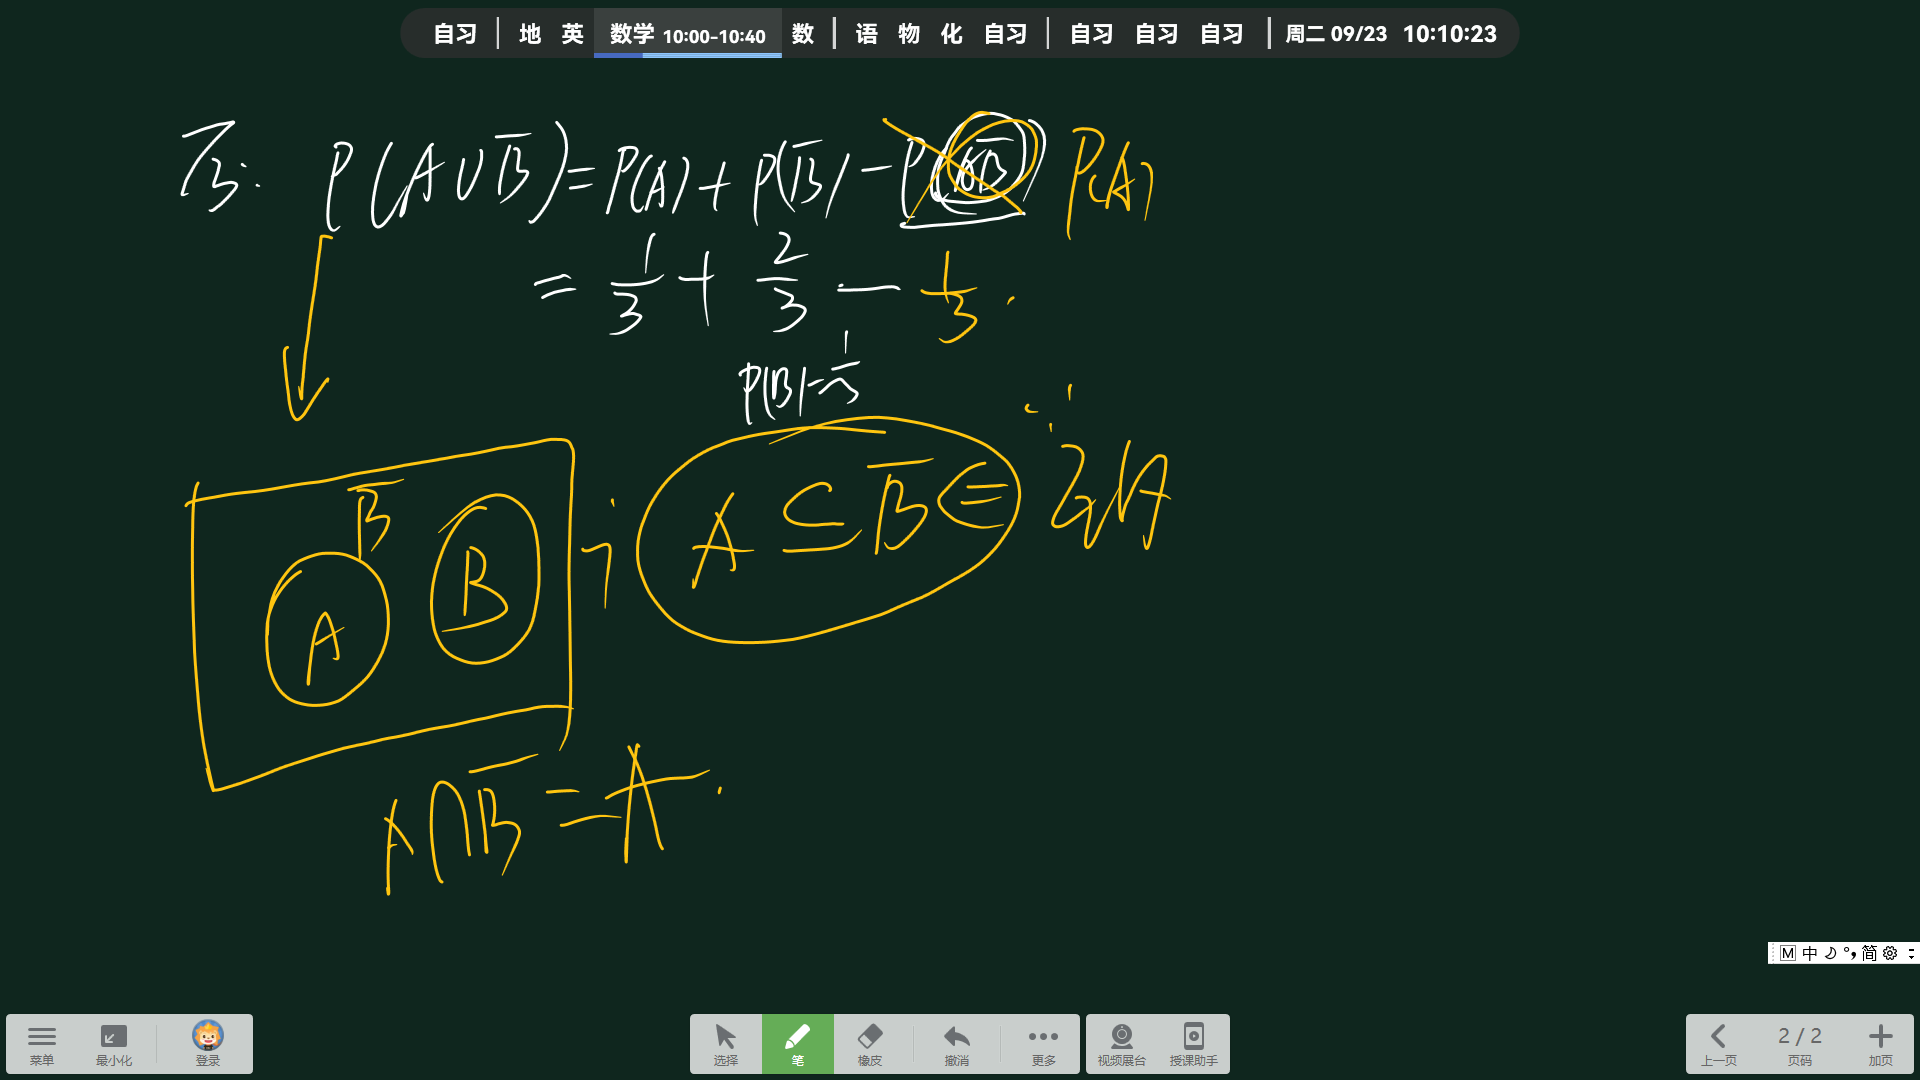 自习 | 地 英 数学 10:00-10:40 数 | 语 物 化 自习 | 自习 自习 自习 | 周二 09/23 10:10:23
P(A∪B̅)=P(A)+P(B̅)-P(AB̅) P(A)
= 1/3 + 2/3 - 1/3.
P(B)=1/3
B̅
A
B
A ⊆ B̅
A∩B̅=A.
M 中 简
菜单 最小化 登录 选择 笔 橡皮 撤消 更多 视频展台 授课助手 上一页 2 / 2 页码 加页